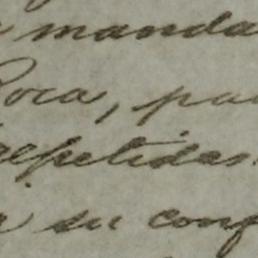 manda
oca, pa
repetidas
su conf